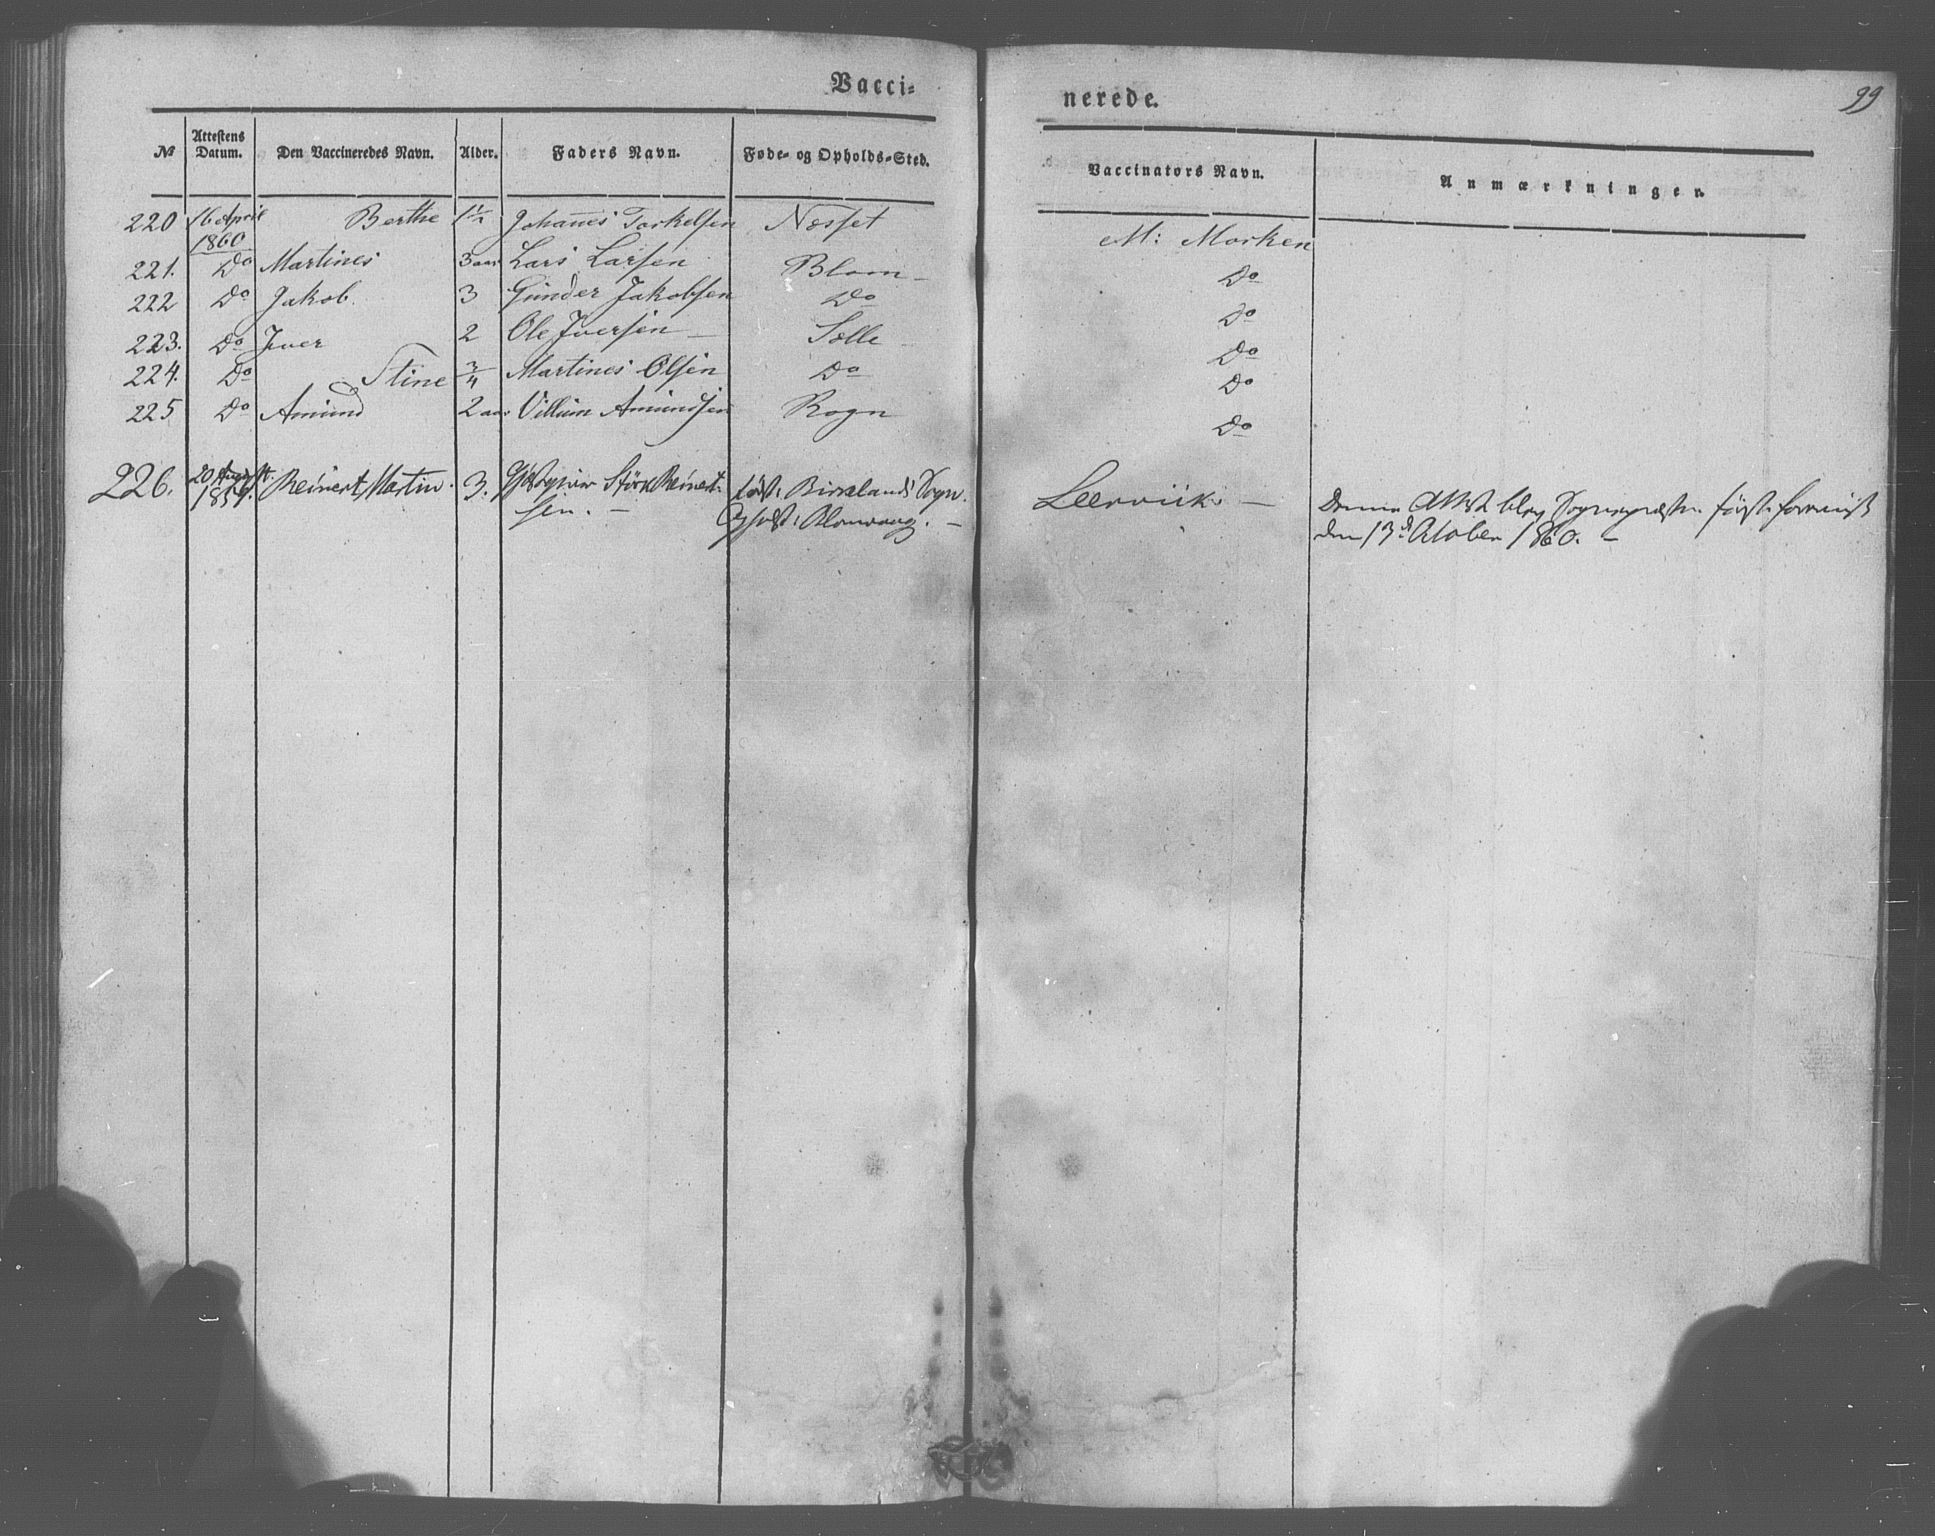 Vacci-
nerede.
99
No
Attestens Datum.
Den Vaccineredes Navn.
Alder.
Faders Navn.
Føde- og Opholds-Sted.
Vaccinators Navn.
Anmærkninger.
220 16 April 1860 Berthe 1½ Johannes Torkelsen Nesset M: Morken
221. Do Martines 3 aar Lars Larsen Blom Do
222 Do Jakob. 3 Gunder Jakobsen Do Do
223. Do Iver 2 Ole Iversen Solle Do
224. Do Stine ¾ Martines Olsen Do Do
225 Do Amund 2 aar Villum Amundsen Rogn Do
226. 20 August. Reinert Martin. 3. Størk Reinert- født: Birkelands Sogn. Leerviik Denne Attest blev Sognepræsten først
sen. Blomvaag. den 13de October 1860.